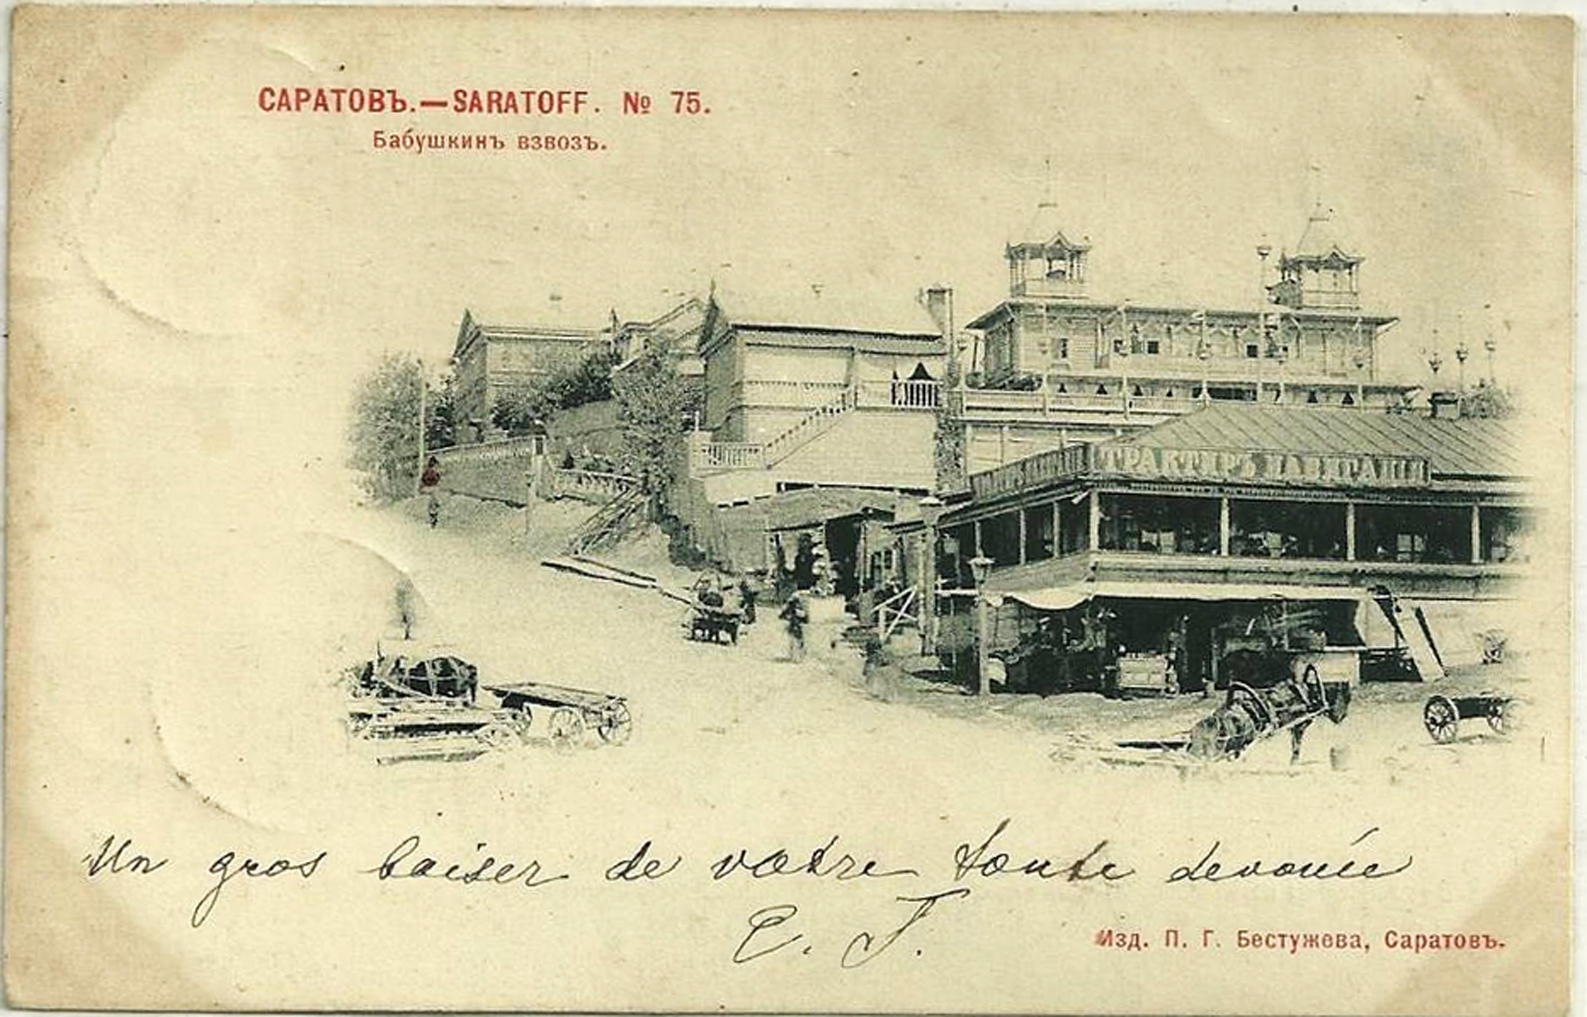 САРАТОВЪ.—SARATOFF. № 75.
Бабушкинъ взвозъ.
ТРАКТИРЪ
Un gros baiser de votre toute devouée
C. J.
Изд. П. Г. Бестужева, Саратовъ.